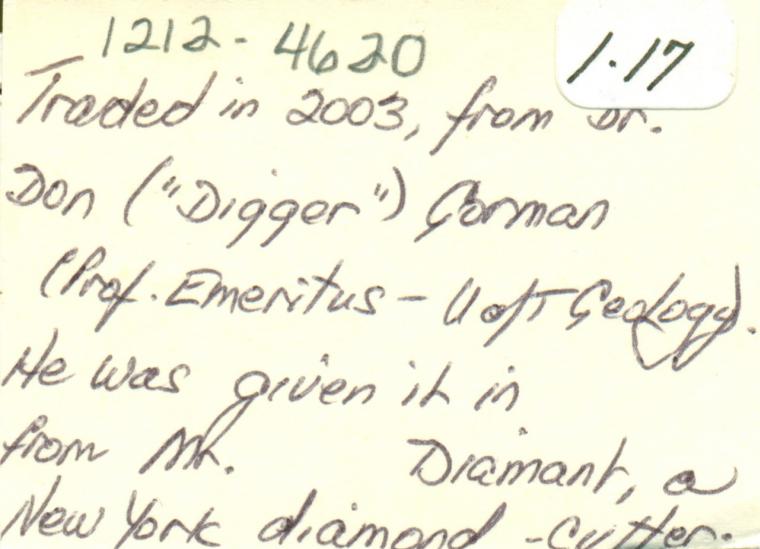 1212-4620
1.17
Traded in 2003, from Dr.
Don ("Digger") Gorman
(Prof. Emeritus - U of T Geology).
He was given it in
from Mr. Diamant, a
New York diamond-cutter.